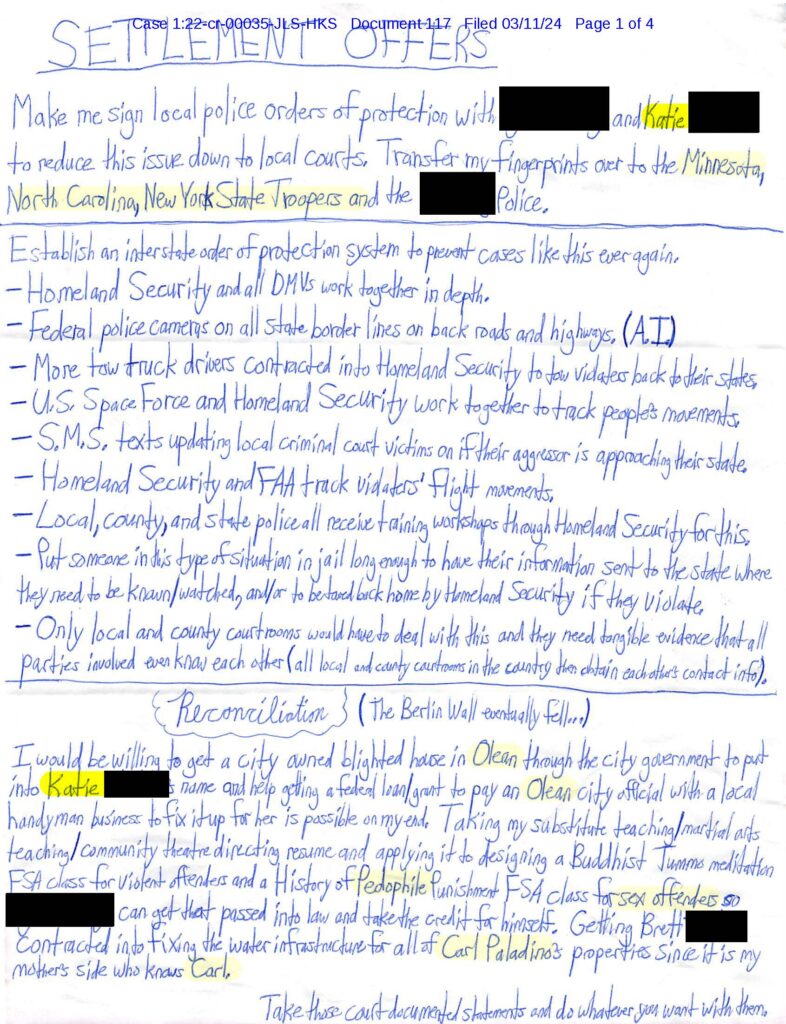 Case 1:22-cr-00035-JLS-HKS Document 117 Filed 03/11/24 Page 1 of 4
SETTLEMENT OFFERS
Make me sign local police orders of protection with and Katie
to reduce this issue down to local courts. Transfer my fingerprints over to the Minnesota,
North Carolina, New York State Troopers and the Police.
Establish an interstate order of protection system to prevent cases like this ever again.
- Homeland Security and all DMVs work together in depth.
- Federal police cameras on all state border lines on back roads and highways. (A.I.)
- More tow truck drivers contracted into Homeland Security to tow violaters back to their states.
- U.S. Space Force and Homeland Security work together to track people's movements.
- S.M.S. texts updating local criminal court victims on if their aggressor is approaching their state.
- Homeland Security and FAA track violaters' flight movements.
- Local, county, and state police all receive training workshops through Homeland Security for this.
- Put someone in this type of situation in jail long enough to have their information sent to the state where
they need to be known/watched, and/or to be towed back home by Homeland Security if they violate.
- Only local and county courtrooms would have to deal with this and they need tangible evidence that all
parties involved even know each other (all local and county courtrooms in the country then obtain each other's contact info).
Reconciliation (The Berlin Wall eventually fell...)
I would be willing to get a city owned blighted house in Olean through the city government to put
into Katie 's name and help getting a federal loan/grant to pay an Olean city official with a local
handyman business to fix it up for her is possible on my end. Taking my substitute teaching/martial arts
teaching/community theatre directing resume and applying it to designing a Buddhist Tummo meditation
FSA class for violent offenders and a History of Pedophile Punishment FSA class for sex offenders so
can get that passed into law and take the credit for himself. Getting Brett
contracted into fixing the water infrastructure for all of Carl Paladino's properties since it is my
mother's side who knows Carl.
Take those court documented statements and do whatever you want with them.